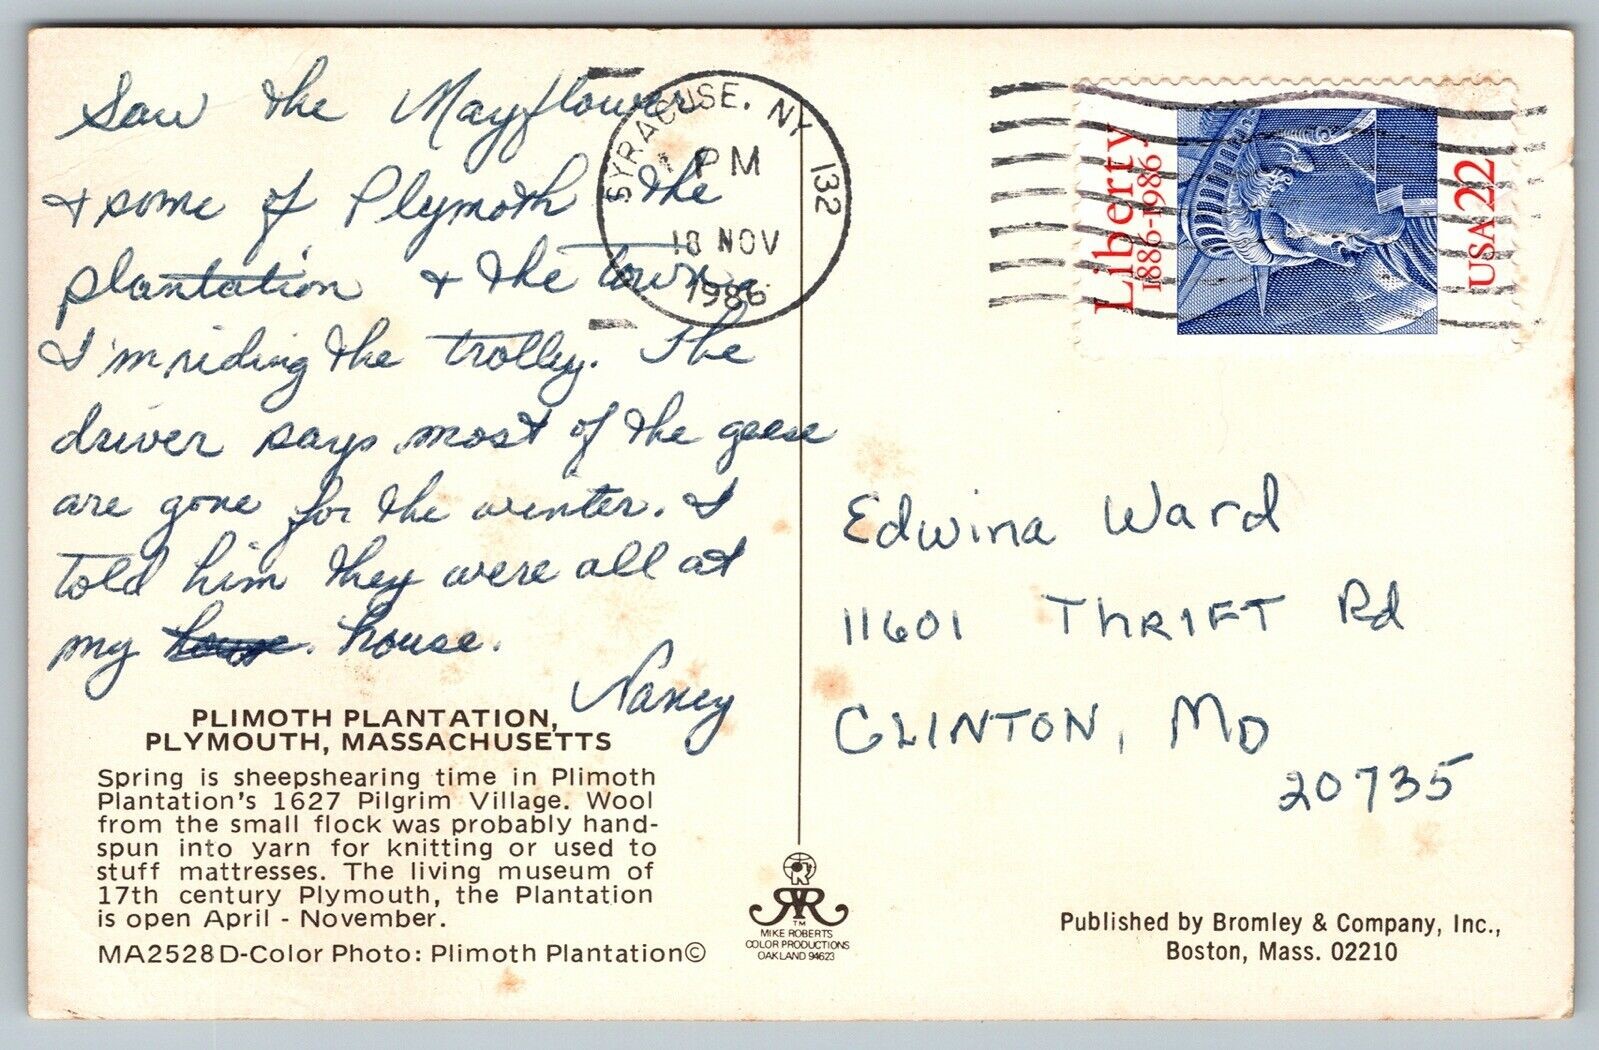 Saw the Mayflower
& some of Plymoth the
plantation & the town.
I'm riding the trolley. The
driver says most of the geese
are gone for the winter. I
told him they were all at
my house. house.
Nancy
PLIMOTH PLANTATION,
PLYMOUTH, MASSACHUSETTS
Spring is sheepshearing time in Plimoth
Plantation's 1627 Pilgrim Village. Wool
from the small flock was probably hand-
spun into yarn for knitting or used to
stuff mattresses. The living museum of
17th century Plymouth, the Plantation
is open April - November.
MA2528 D-Color Photo: Plimoth Plantation©
SYRACUSE, NY 132
PM
18 NOV
1986
Liberty
1886-1986
USA 22
Edwina Ward
11601 THRIFT Rd
CLINTON, MD
20735
TM
MIKE ROBERTS
COLOR PRODUCTIONS
OAKLAND 94623
Published by Bromley & Company, Inc.,
Boston, Mass. 02210